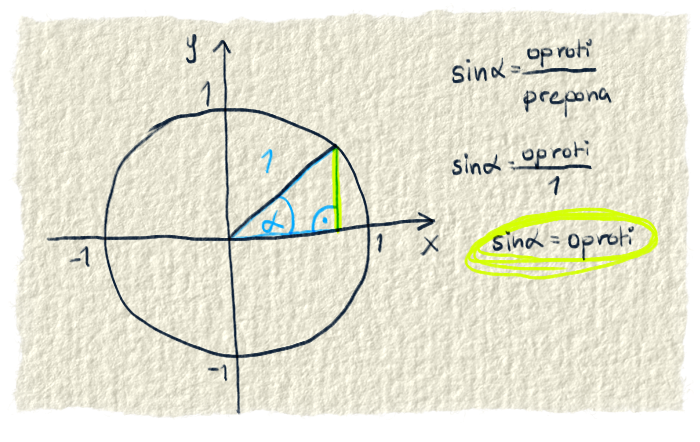 y
1
1
α
-1
1
x
-1
sinα = oproti
prepona
sinα = oproti
1
sinα = oproti